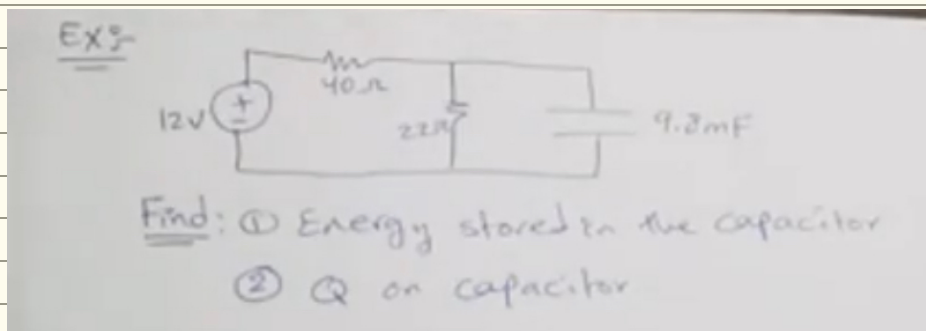 Ex:-
40Ω
12V
+
-
22Ω
Find: ① Energy stored in the capacitor
② Q on capacitor